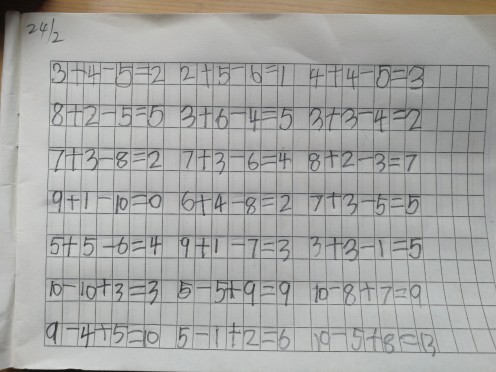 24/2
3+4-5=2 2+5-6=1 4+4-5=3
8+2-5=5 3+6-4=5 3+3-4=2
7+3-8=2 7+3-6=4 8+2-3=7
9+1-10=0 6+4-8=2 7+3-5=5
5+5-6=4 9+1-7=3 3+3-1=5
10-10+3=3 5-5+9=9 10-8+7=9
9-4+5=10 5-1+2=6 10-5+8=13